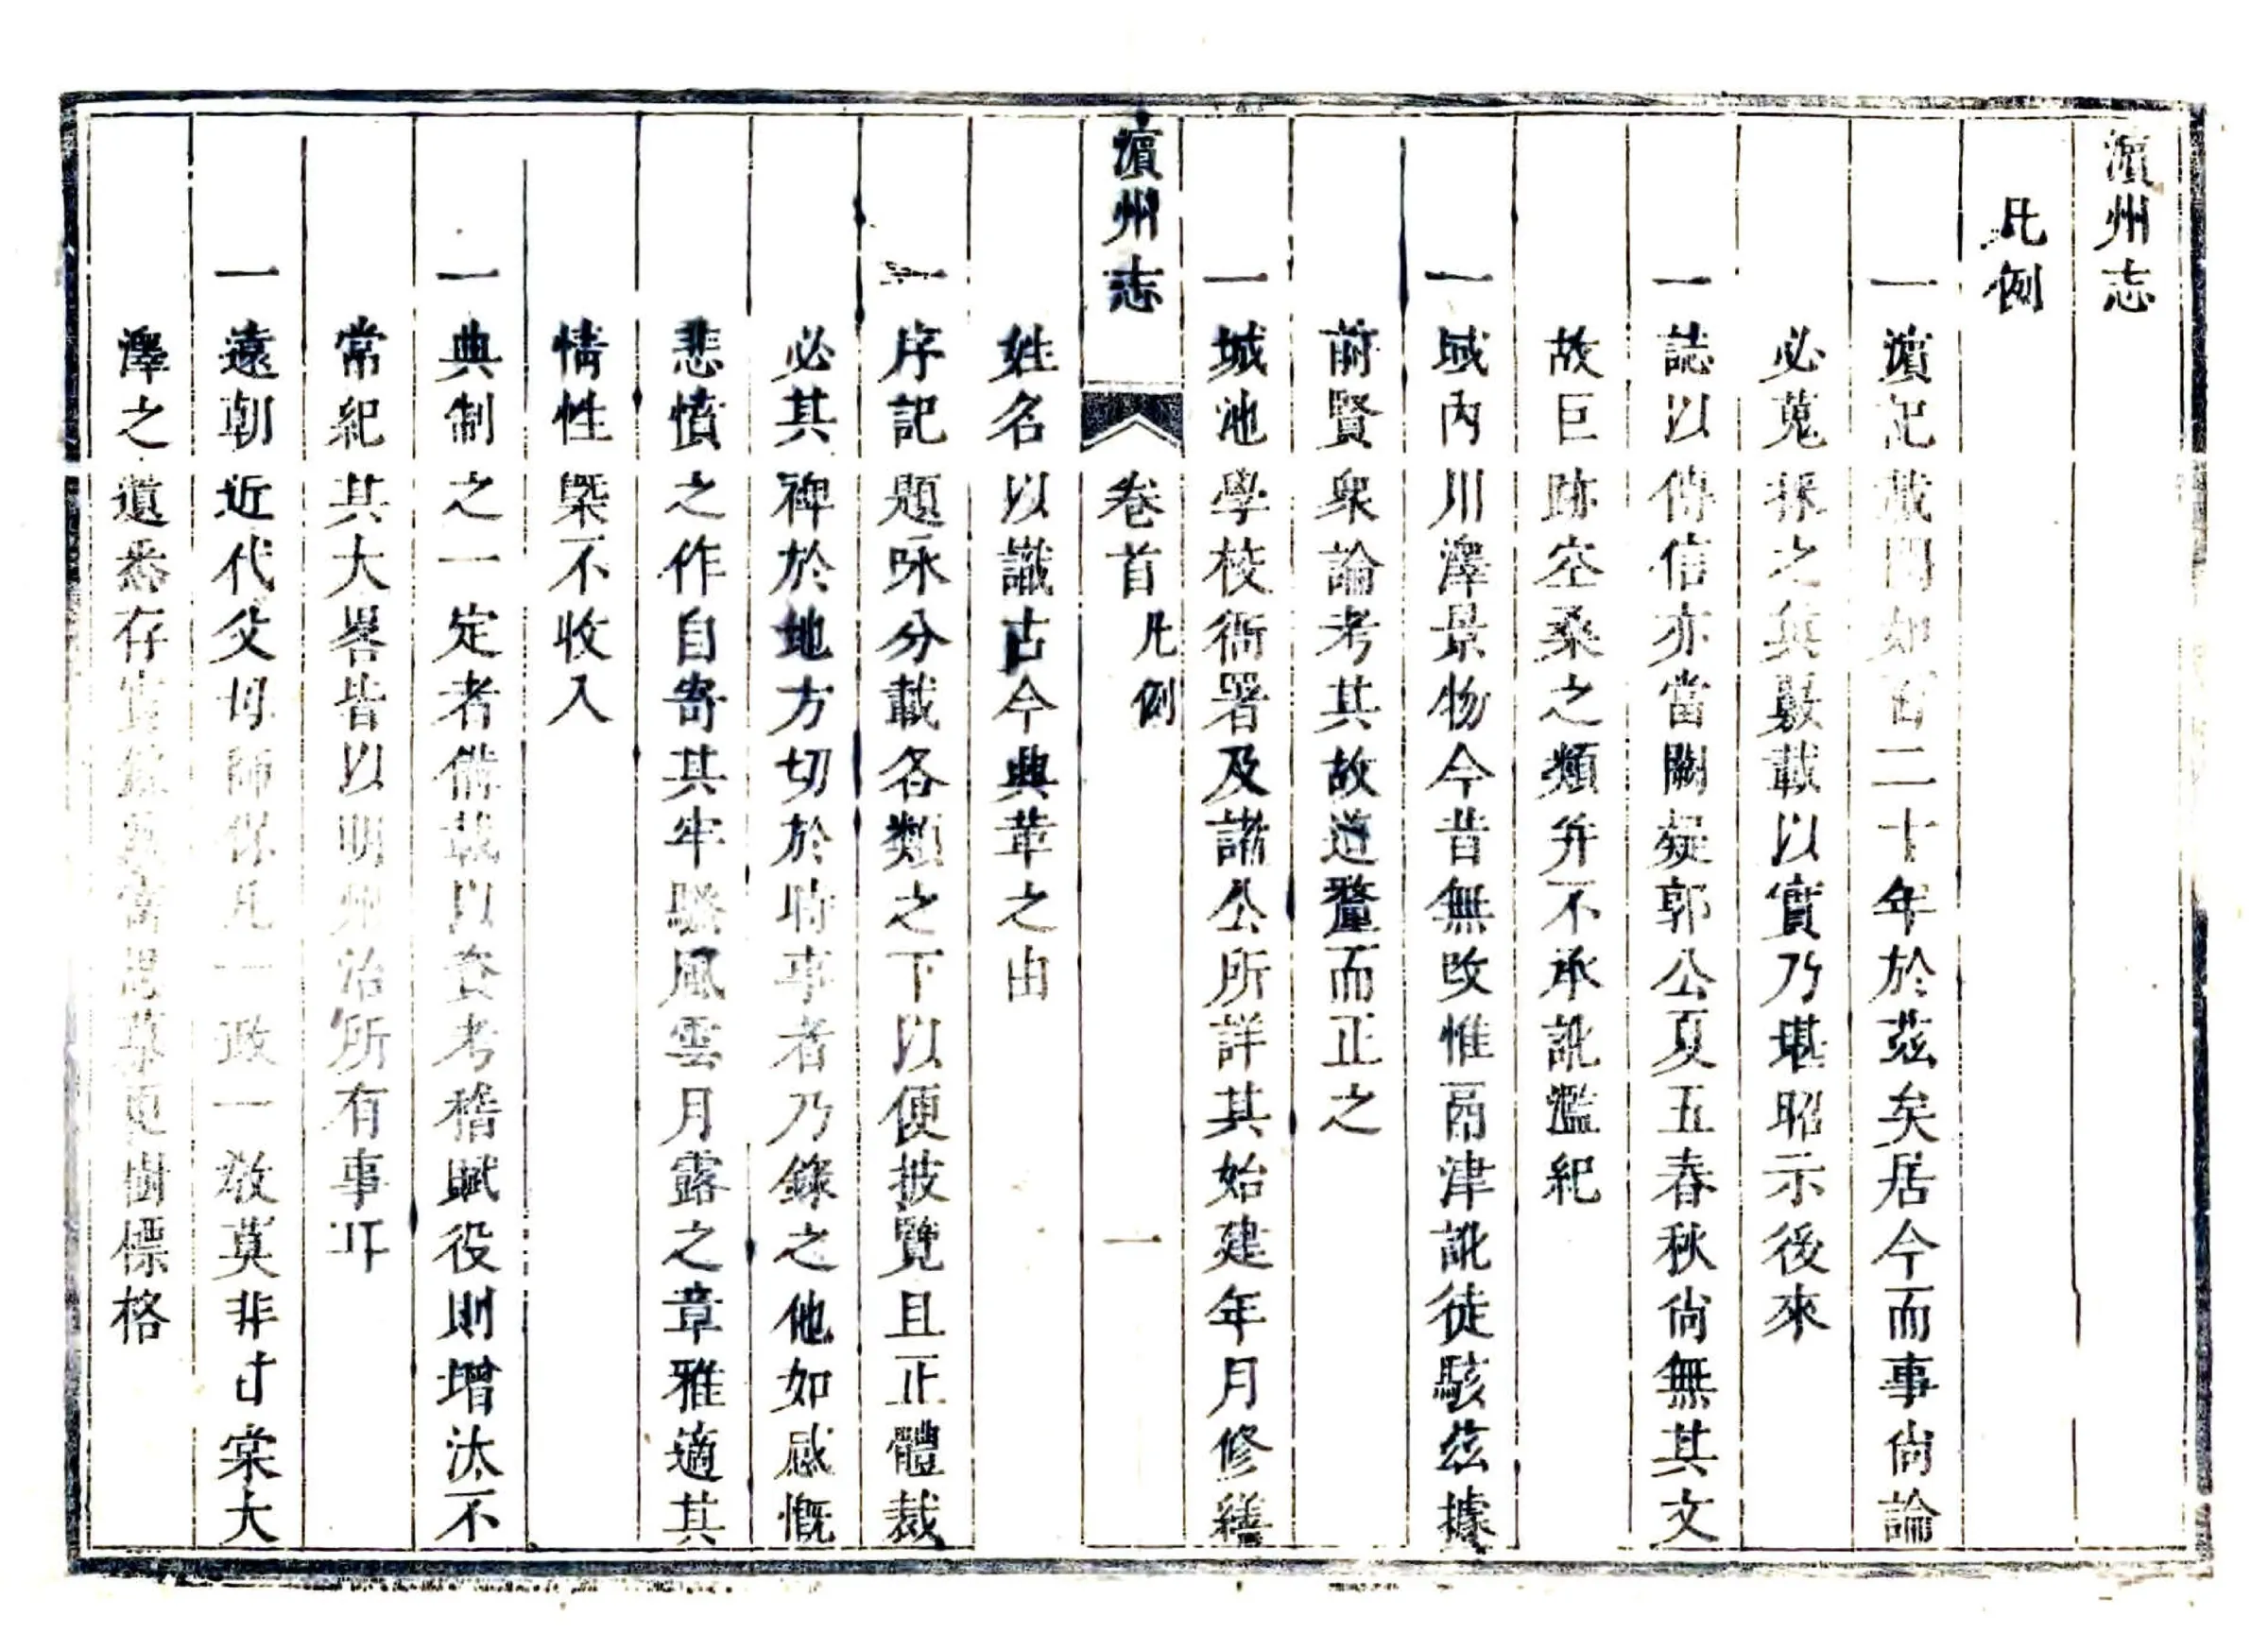 濵州志
凡例
一濵記載間如百二十年於茲矣居今而事尚論
必蒐採之與覈載以實乃堪昭示後來
一誌以傳信亦當闕疑郭公夏五春秋尙無其文
故巨跡空桑之類并不承訛濫紀
一域內川澤景物今昔無攺惟鬲津訛徒駭茲據
前賢衆論考其故道釐而正之
一城池學校衙署及諸公所詳其始建年月修繕
濵州志 卷首 凡例 一
姓名以識古今典革之由
一序記題咏分載各類之下以便披覽且正體裁
必其裨於地方切於時事者乃錄之他如感慨
悲憤之作自寄其牢騷風雲月露之章雅適其
情性槩不收入
一典制之一定者備載以資考稽賦役則增汰不
常紀其大畧皆以明州治所有事耳
一遠朝近代父母師保凡一政一敎莫非甘棠大
澤之遺悉存 樹標格